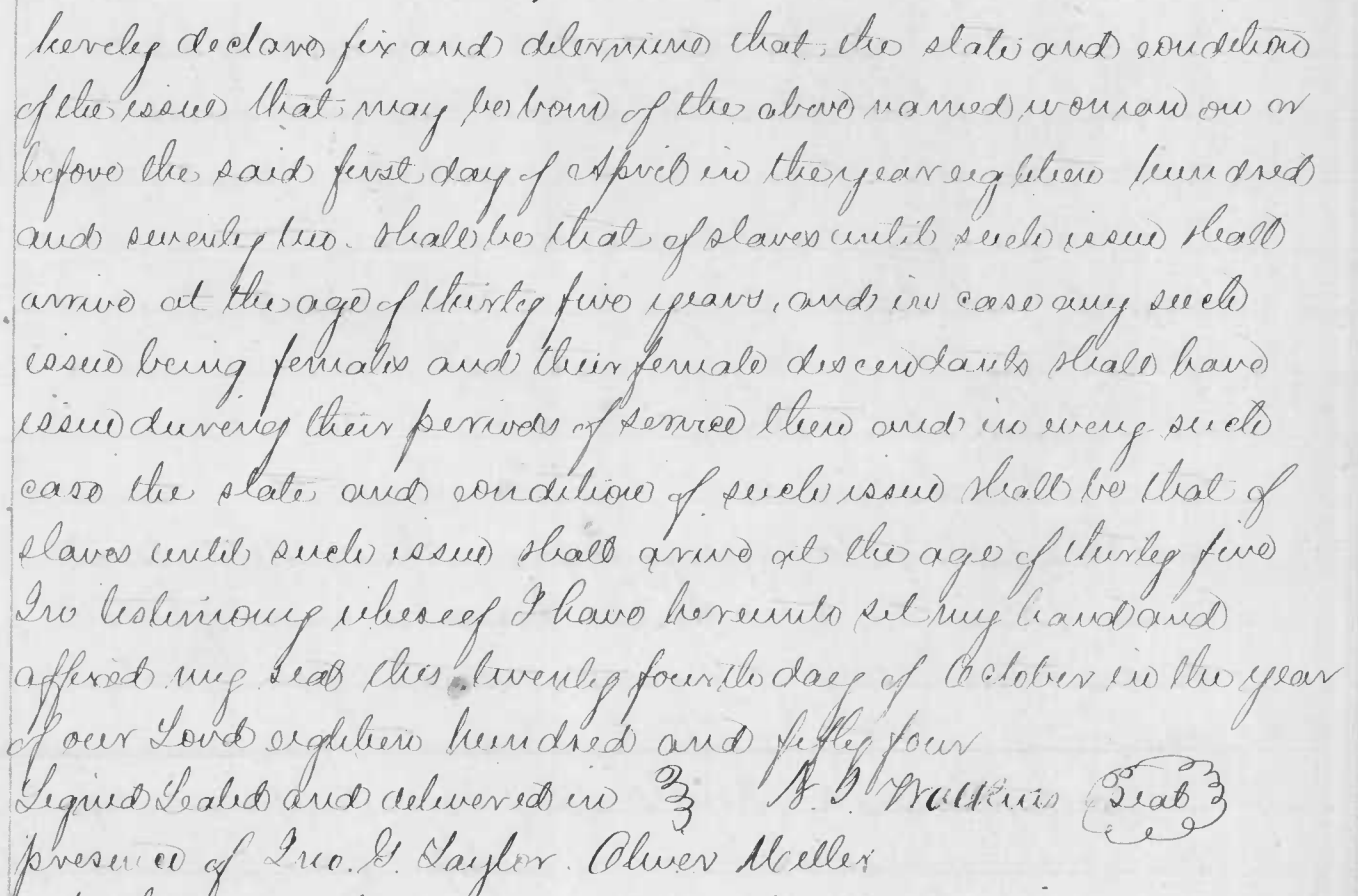 hereby declare fix and determine that the state and condition
of the issue that may be born of the above named woman on or
before the said first day of April in the year eighteen hundred
and seventy two. shall be that of slaves until such issue shall
arrive at the age of thirty five years, and in case any such
issue being females and their female descendants shall have
issue during their periods of service then and in every such
case the state and condition of such issue shall be that of
slaves until such issue shall arrive at the age of thirty five
In testimony whereof I have hereunto set my hand and
affixed my seal this twenty fourth day of October in the year
of our Lord eighteen hundred and fifty four
Signed Sealed and delivered in Watkins Seal
presence of Jno. G. Taylor. Oliver Miller